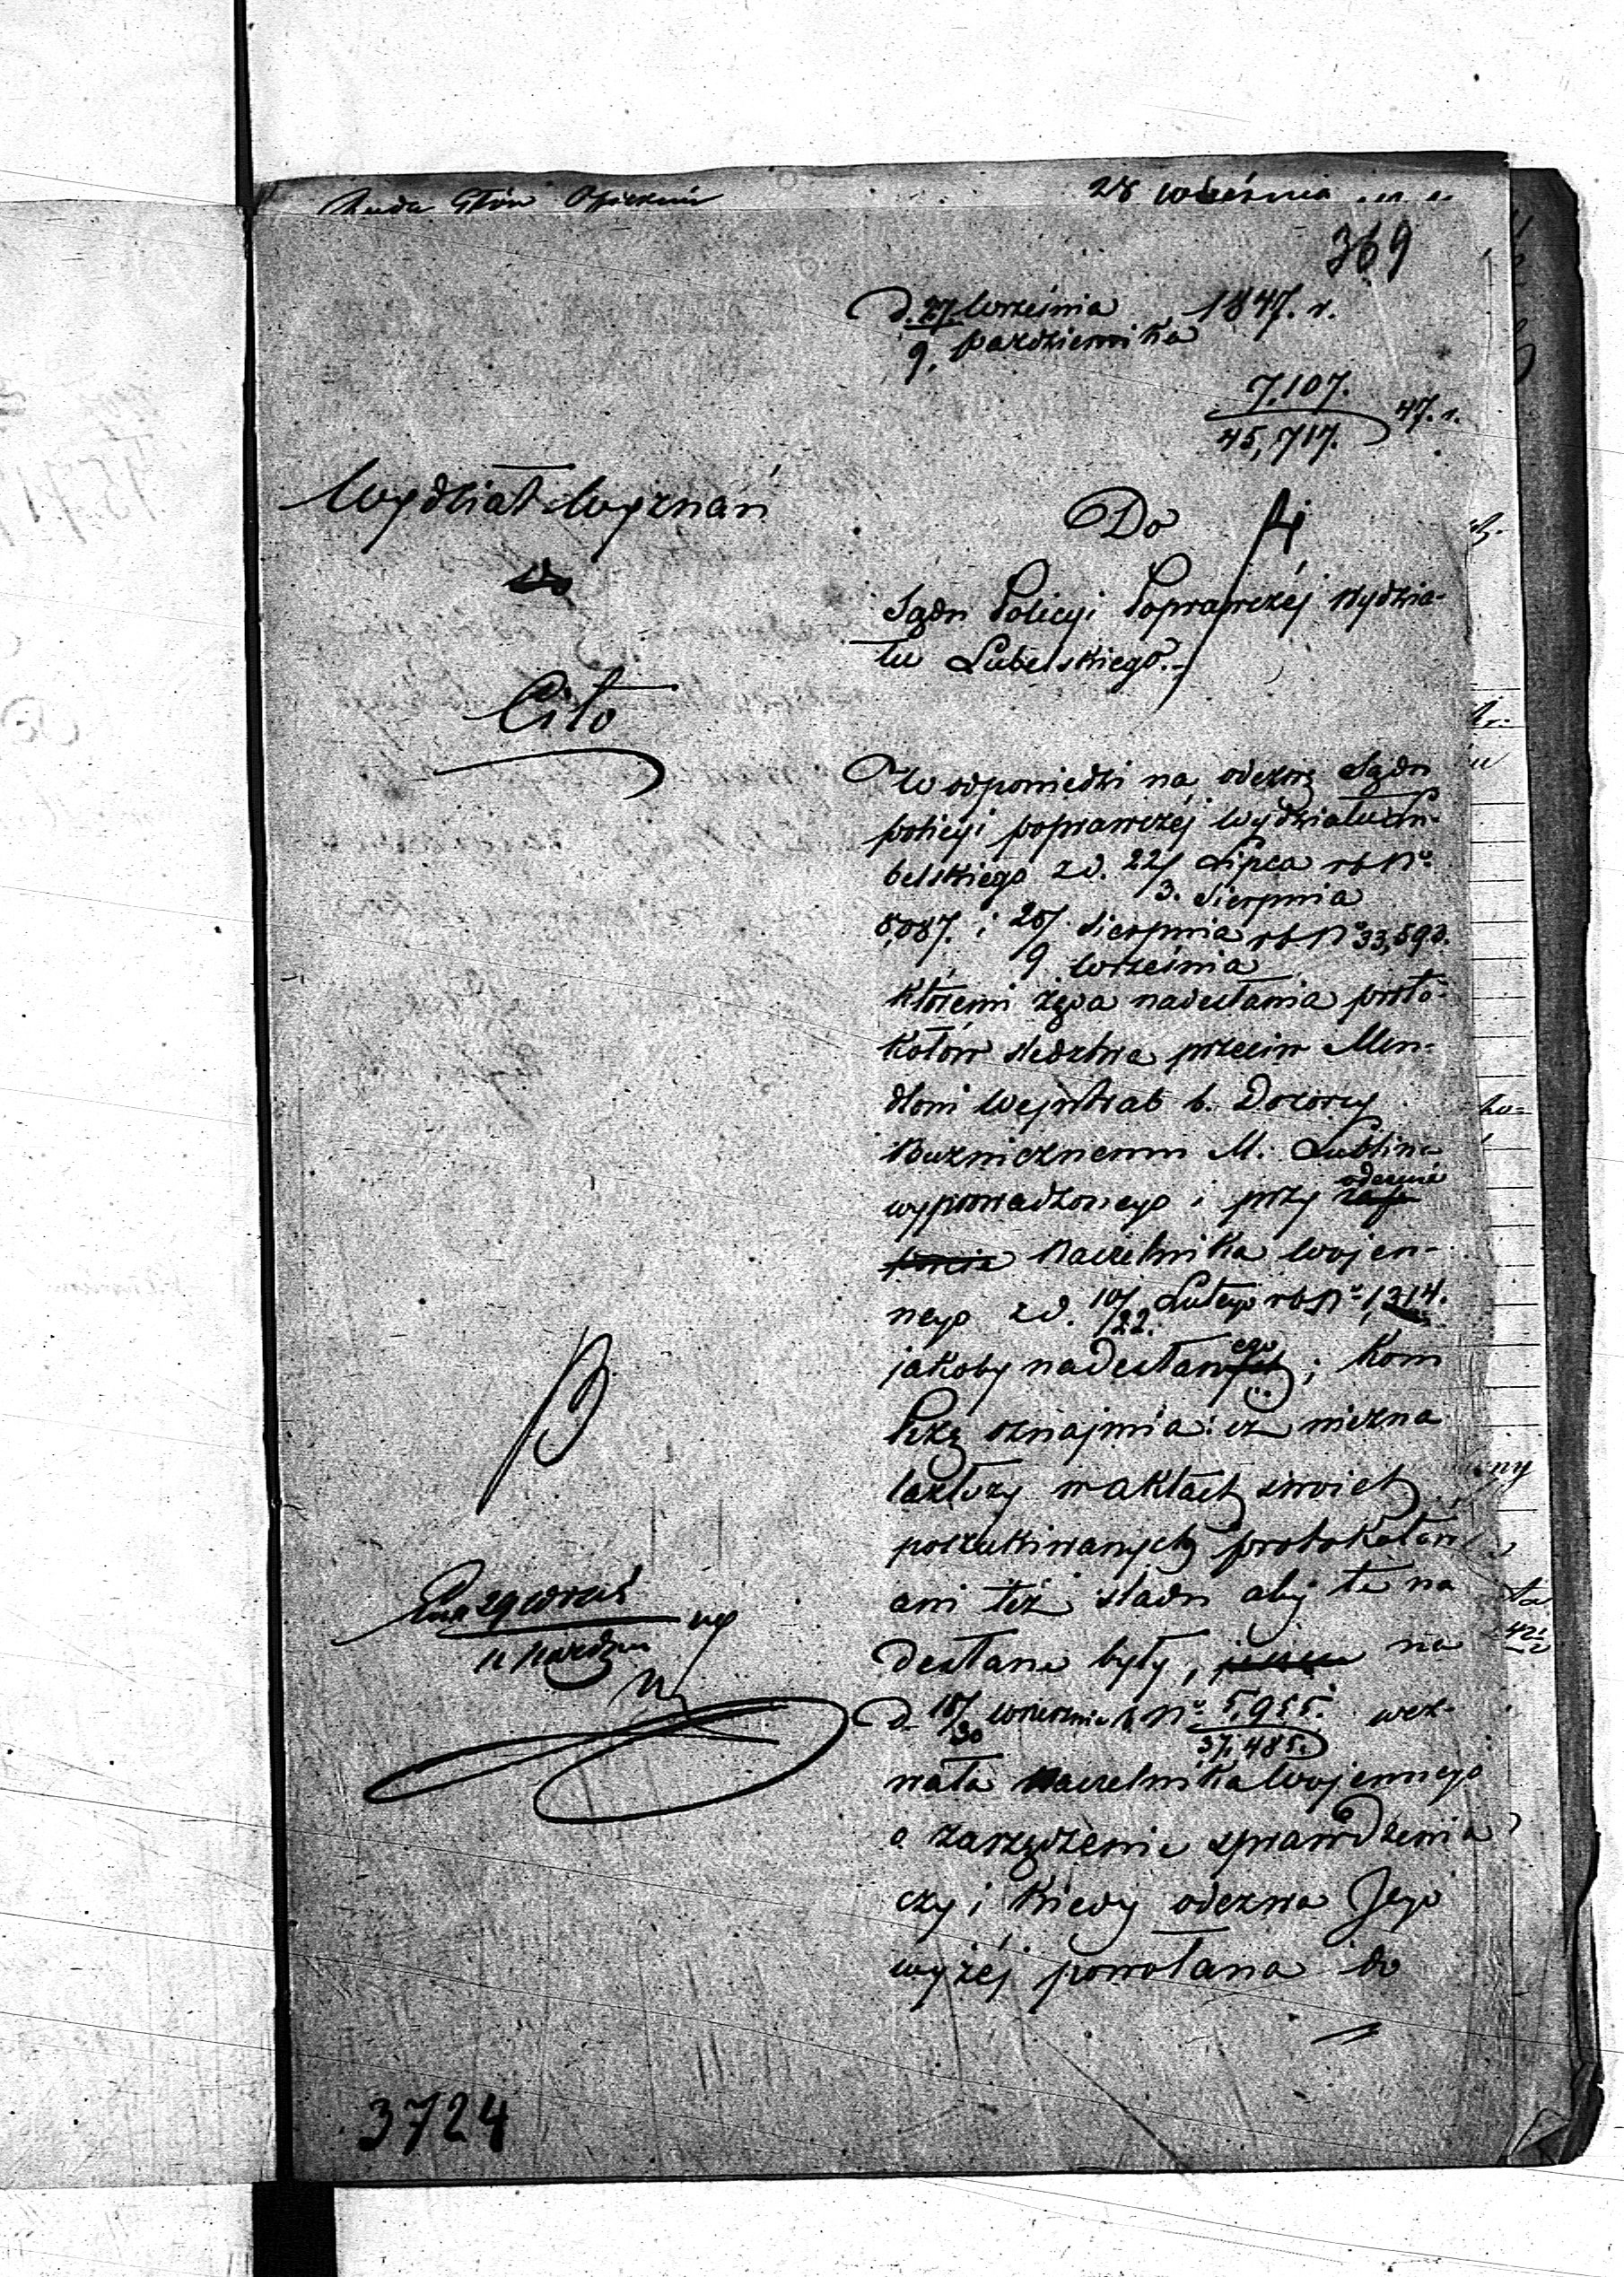 28 Września
369
d. 27 Września 1847. r.
9. Października
7,107.
45,717. 47. r.
Wydział Wyznań
Do
Sądu Policyi Poprawczéj Wydzia-
łu Lubelskiego.-
Cito
W odpowiedzi na odezwę Sądu
policyi poprawczéj Wydziału Lu-
belskiego z d. 22/ Lipca rb No
3. Sierpnia
5,087. i 28/ Sierpnia rb No 33,593.
9 Września
któremi żąda nadesłania proto-
kołów śledztwa przeciw Men-
dlowi Wejntrab b. Dozorcy
Bużnicznemu M. Lublina
wyprowadzonego i przy odezwie
Naczelnika Wojen-
nego z d. 10/ Lutego rb No 1,314.
22.
jakoby nadesłanego; Kom
Rzą oznajmia: iż niezna
lazłszy w aktach swoich
poszukiwanych protokółów
ani też śladu aby te na
desłane były, na
d. 18/ Września b No 5,955. wez-
30 37,485.
wała Naczelnika Wojennego
o zarządzenie sprawdzenia
czy i kiedy odezwa Jego
wyżéj powołana do
3724